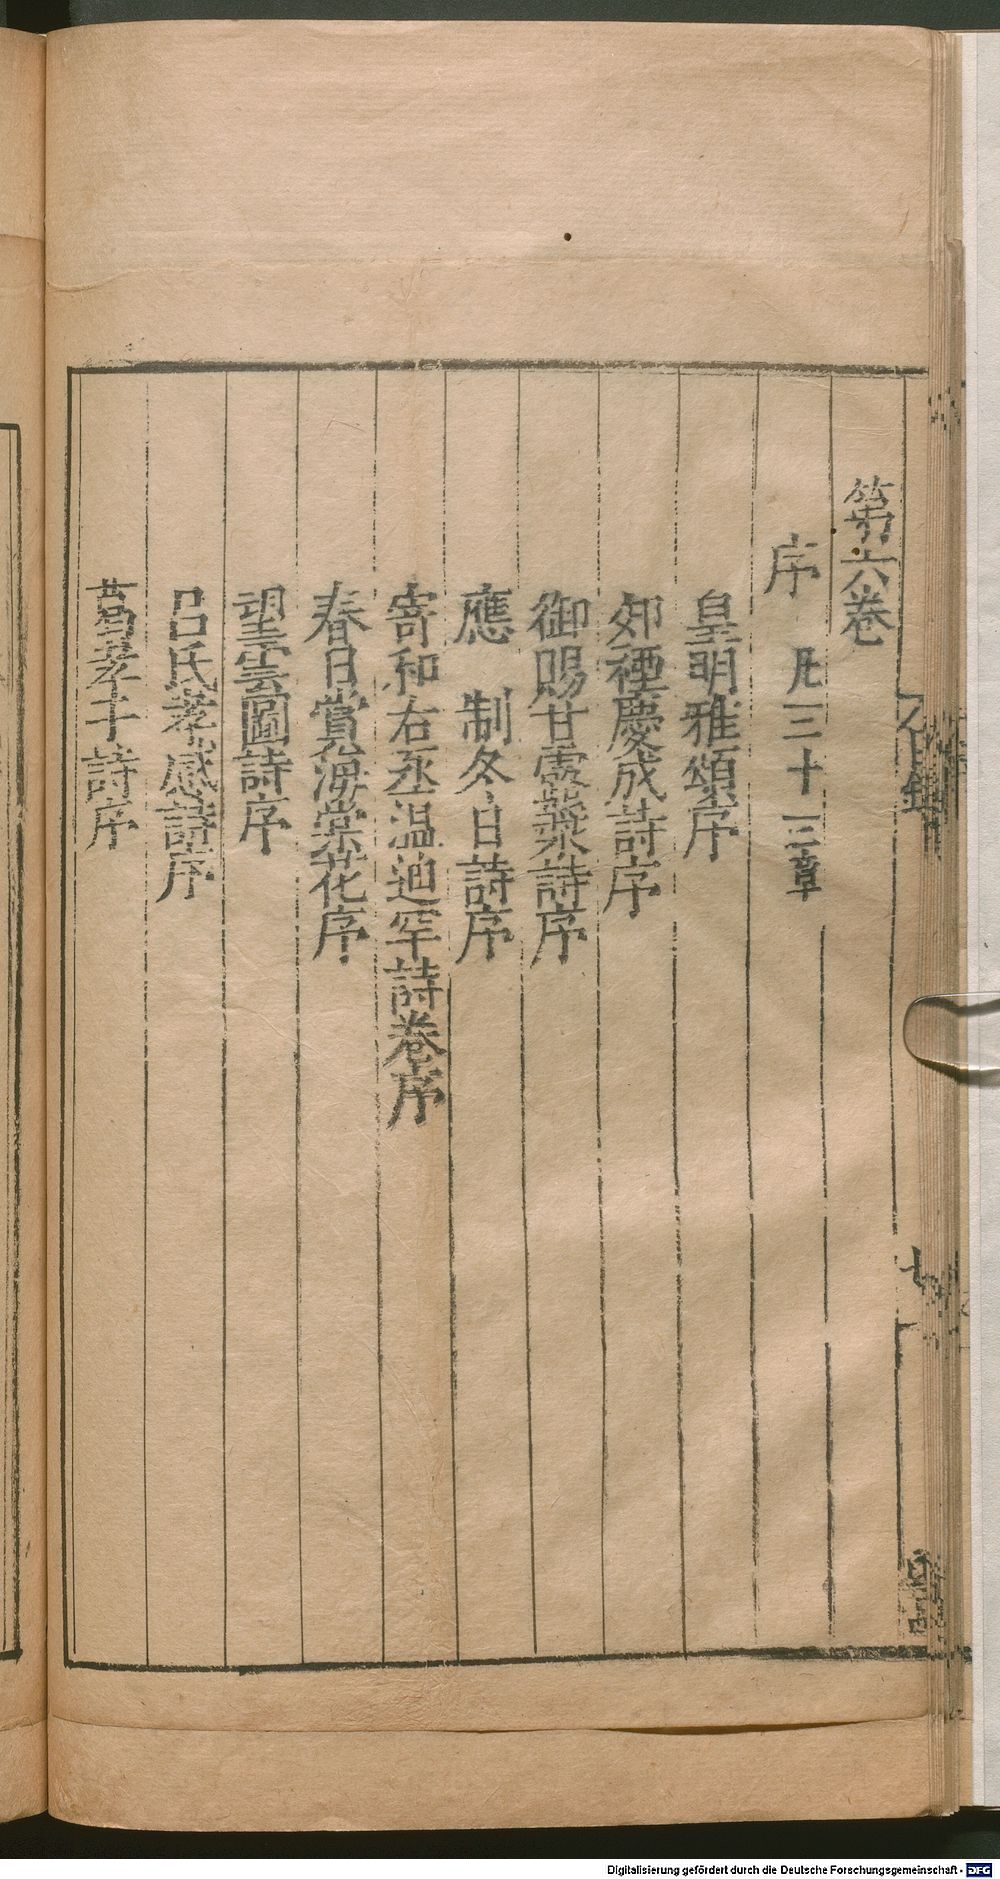 第六卷
序 凡三十三章
皇明雅頌序
郊禋慶成詩序
御賜甘露漿詩序
應 制冬日詩序
寄和右丞温迪罕詩卷序
春日賞海棠花序
望雲圖詩序
吕氏孝感詩序
葛孝子詩序
七
Digitalisierung gefördert durch die Deutsche Forschungsgemeinschaft - DFG